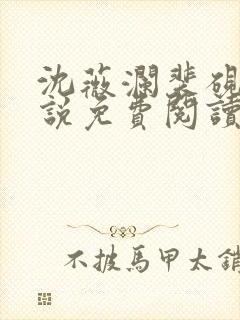 沈薇瀾裴硯
說免費閱讀
不披馬甲太銷